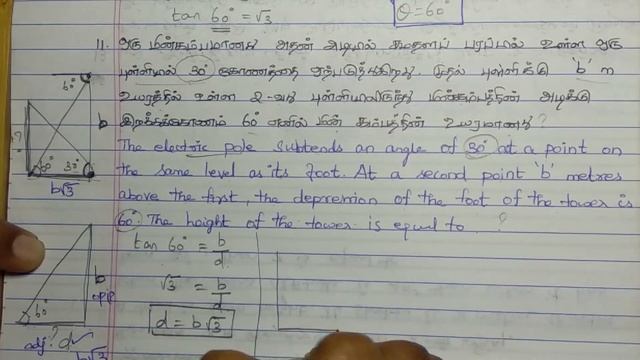 tan 60° = √3
θ = 60°
11. ஒரு மின்கம்பமானது அதன் அடியில் சமதளப் பரப்பில் உள்ள ஒரு
புள்ளியில் 30° கோணத்தை ஏற்படுத்துகிறது. முதல் புள்ளிக்கு 'b' m
உயரத்தில் உள்ள 2-வது புள்ளியிலிருந்து மின்கம்பத்தின் அடிக்கு
இறக்கக்கோணம் 60° எனில் மின் கம்பத்தின் உயரமானது?
The electric pole subtends an angle of 30° at a point on
the same level as its foot. At a second point 'b' metres
above the first, the depression of the foot of the tower is
60°. The height of the tower is equal to ?
60°
b
?
60° 30°
b√3
tan 60° = b/d
√3 = b/d
d = b√3
b
opp
60°
adj ? d
b√3